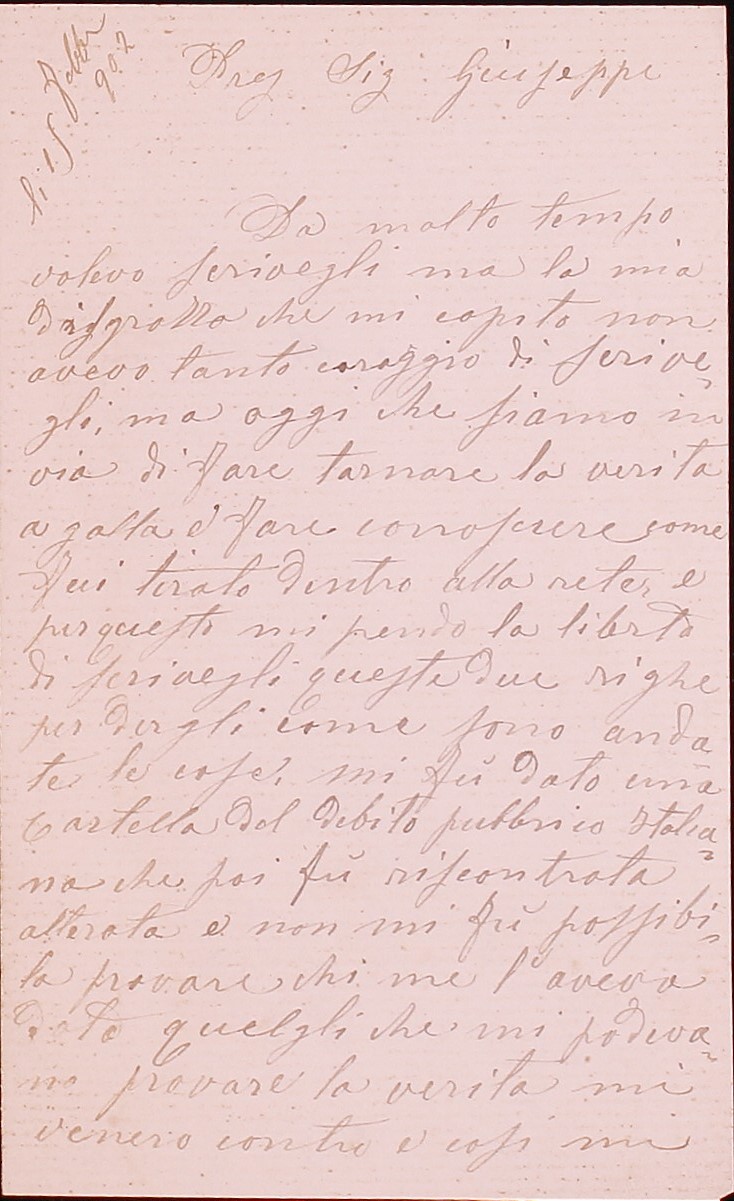 li 15 Febbr
902
Preg Sig Giuseppe
Da molto tempo
volevo scrivegli ma la mia
disgrazia che mi capito non
avevo tanto coraggio di scrive-
gli, ma oggi che siamo in
via di fare tornare la verita
a galla e fare conoscere come
fui tirato dentro alla rete, e
perquesto mi pendo la liberta
di scrivegli queste due righe
per dergli come sono anda
te le cose, mi fù dato una
Cartella del debito pubbrico Italia=
na che poi fù riscontrata
alterata e non mi fù possibi-
la provare chi me l'aveva
data quelgli che mi podeva=
no provare la verita mi
venero contro e cosi mi